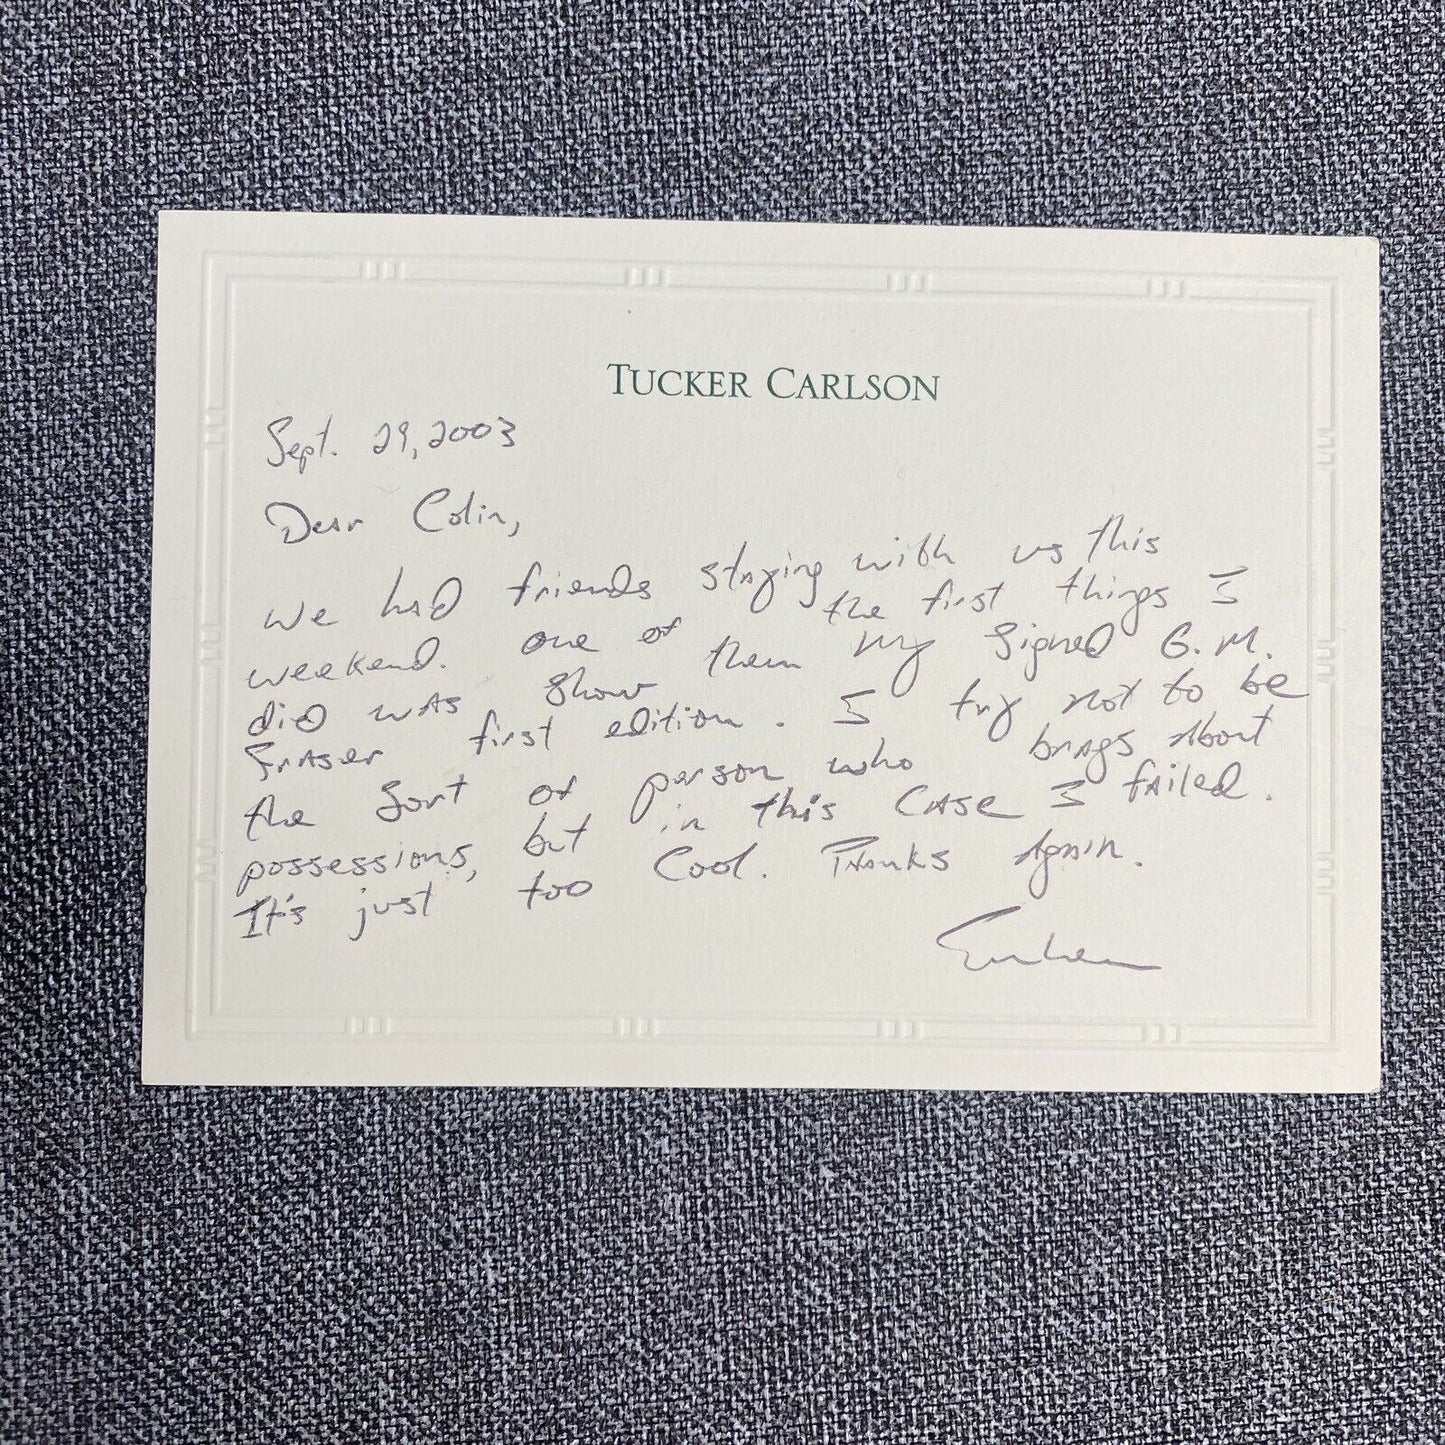 TUCKER CARLSON
Sept. 29, 2003
Dear Colin,
We had friends staying with us this
weekend. One of the first things I
did was show them my signed G.M.
Fraser first edition. I try not to be
the sort of person who brags about
possessions, but in this case I failed.
It's just too cool. Thanks again.
Tucker